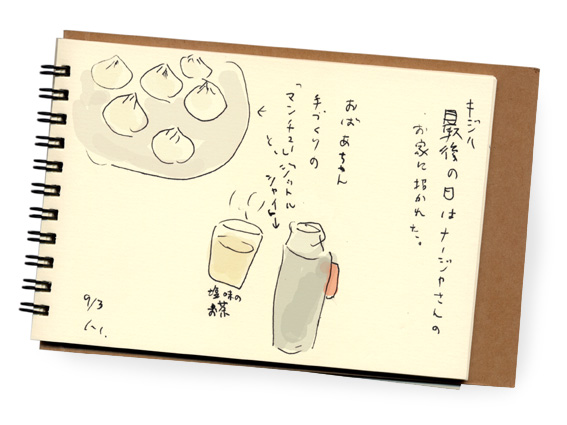 キジル
最後の日はナージャさんの
お家に招かれた。
おばあちゃん
手づくりの
「マンチュー」
と、「ジットル
シャイ」
塩味の
お茶
9/3